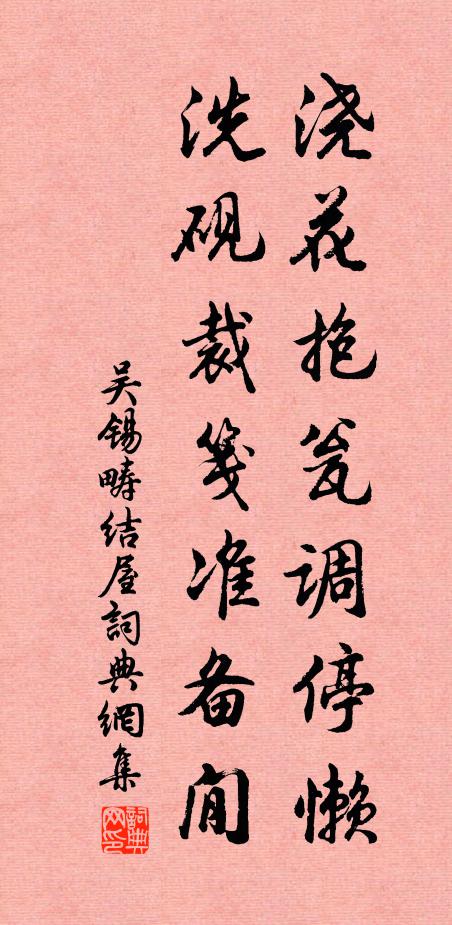 浇花抱瓮调停懒
洗砚裁笺准备闲
吴锡畴结屋詞典網集
詞典網印